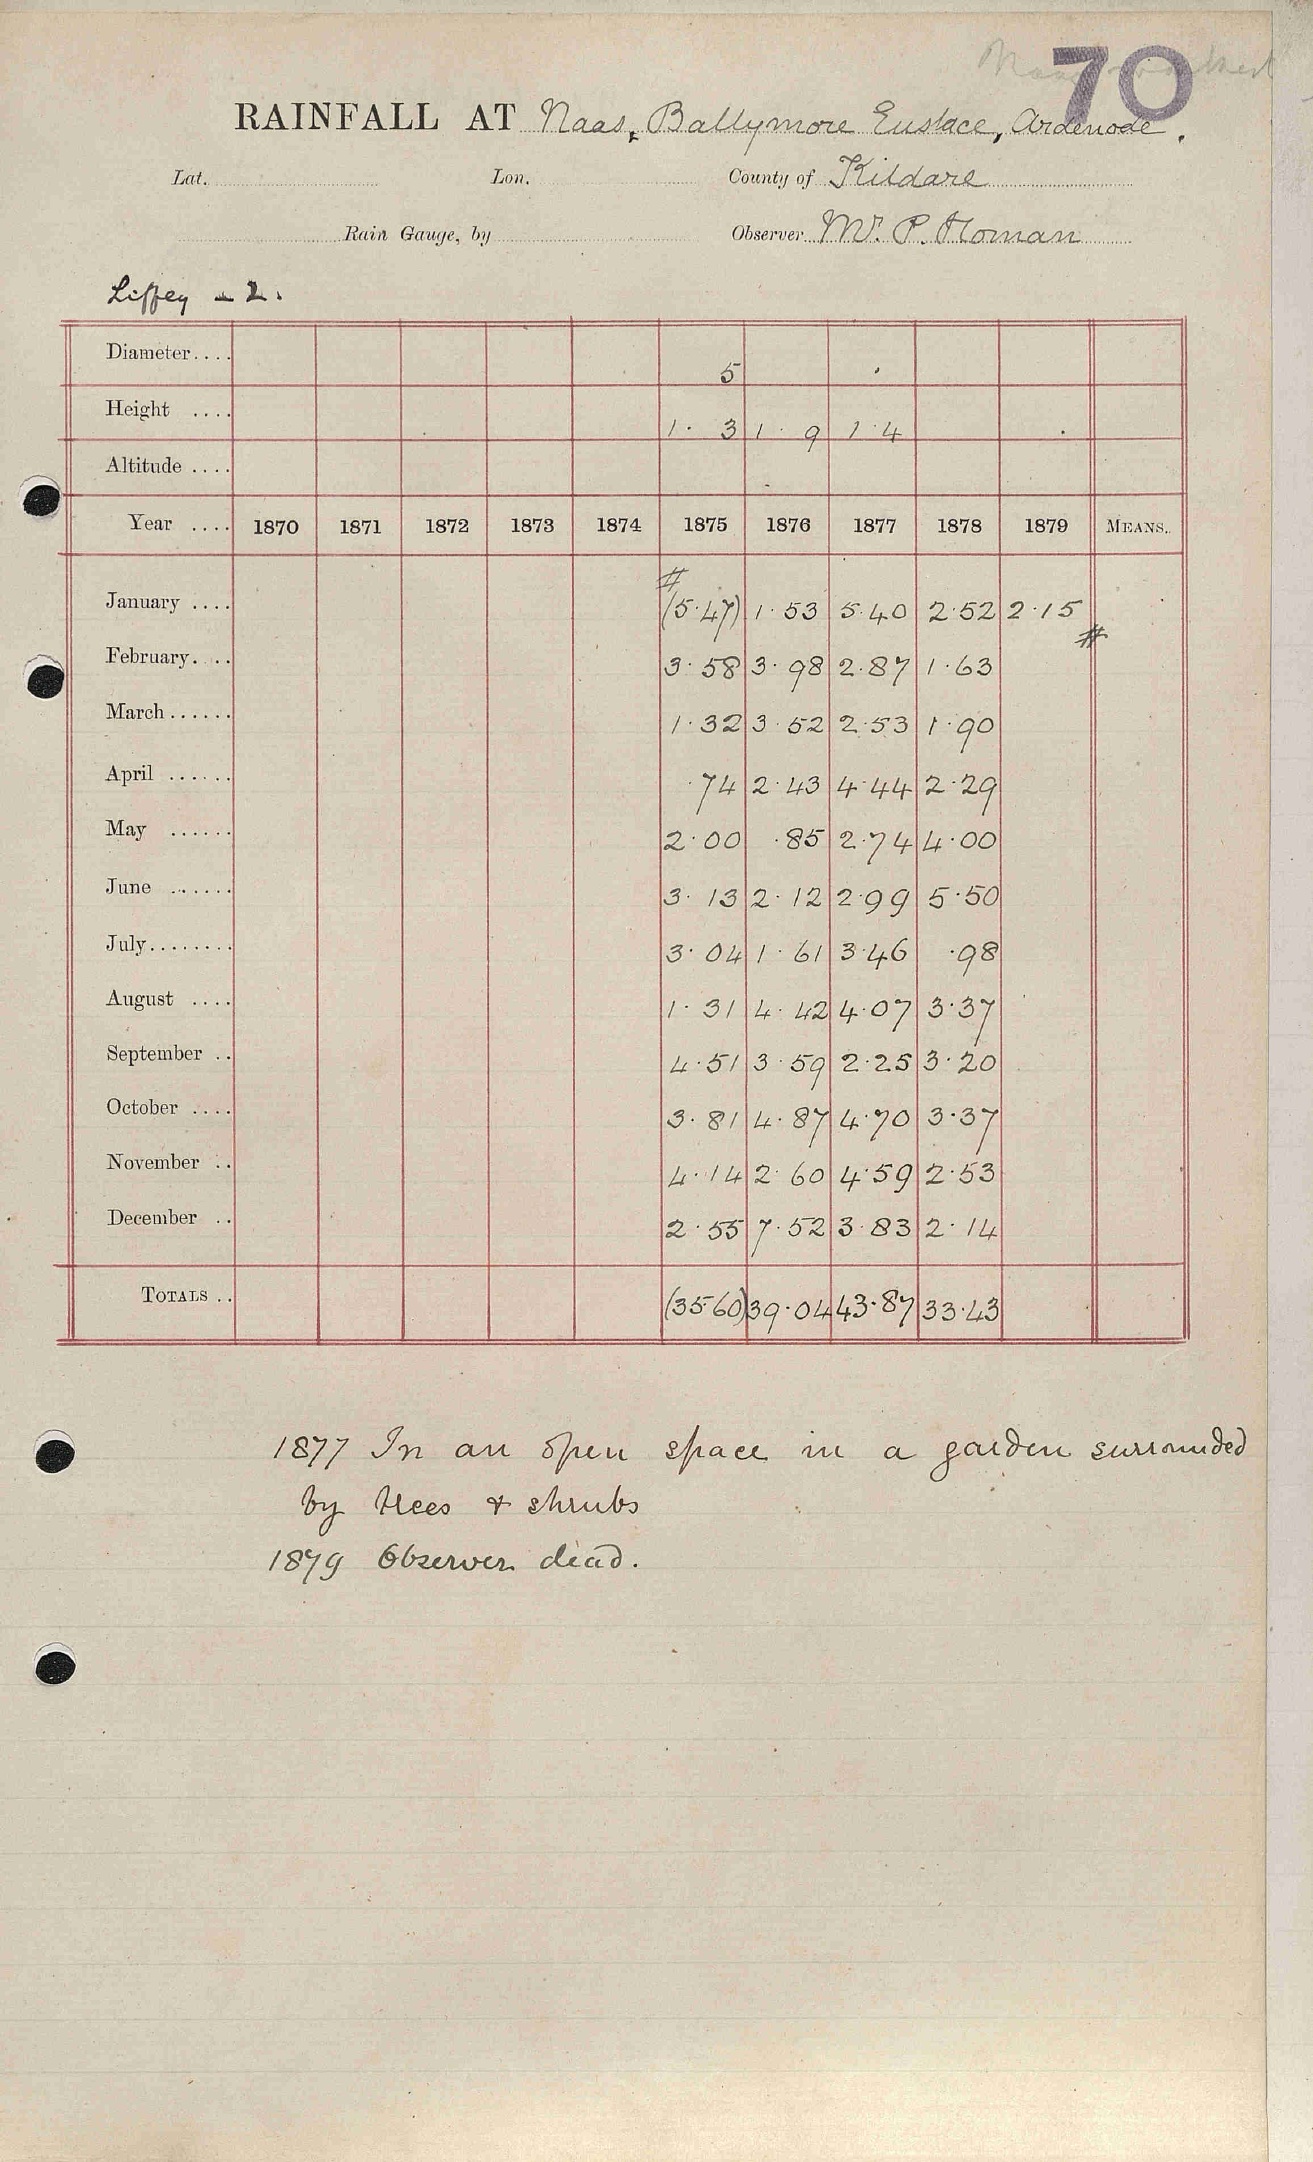 70
RAINFALL AT Naas, Ballymore Eustace, Ardenode.
Lat. Lon. County of Kildare
Rain Gauge, by Observer Mr. P. Homan
Liffey - 2.
Diameter.... 5
Height .... 1. 3 1. 9 1.4
Altitude ....
Year .... 1870 1871 1872 1873 1874 1875 1876 1877 1878 1879 MEANS.
#
January .... (5.47) 1.53 5.40 2.52 2.15
#
February.... 3.58 3.98 2.87 1.63
March...... 1.32 3.52 2.53 1.90
April ...... .74 2.43 4.44 2.29
May ...... 2.00 .85 2.74 4.00
June ...... 3.13 2.12 2.99 5.50
July........ 3.04 1.61 3.46 .98
August .... 1.31 4.42 4.07 3.37
September .. 4.51 3.59 2.25 3.20
October .... 3.81 4.87 4.70 3.37
November .. 4.14 2.60 4.59 2.53
December .. 2.55 7.52 3.83 2.14
TOTALS .. (35.60) 39.04 43.87 33.43
1877 In an open space in a garden surrounded
by trees & shrubs
1879 Observer dead.